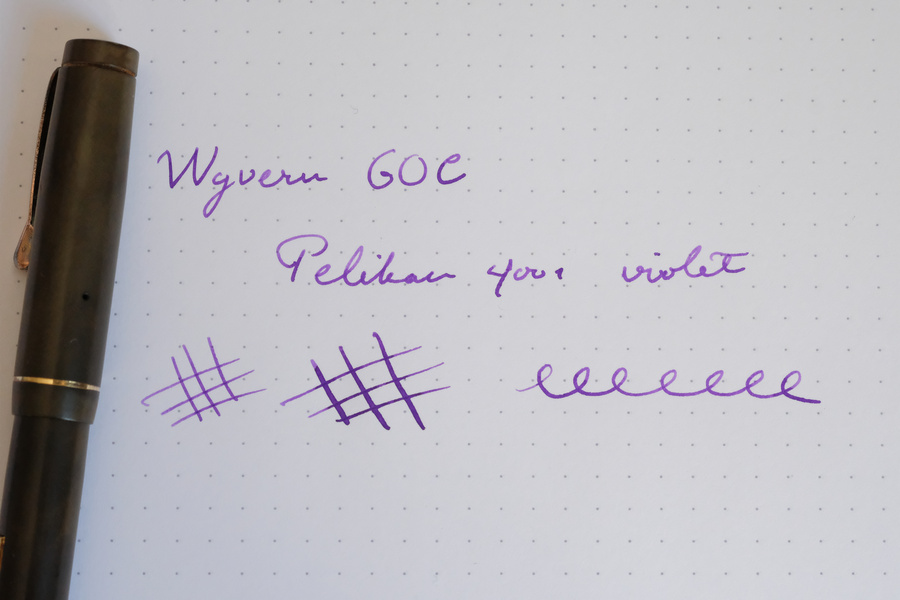 Wyvern 60C
Pelikan 4001 violet